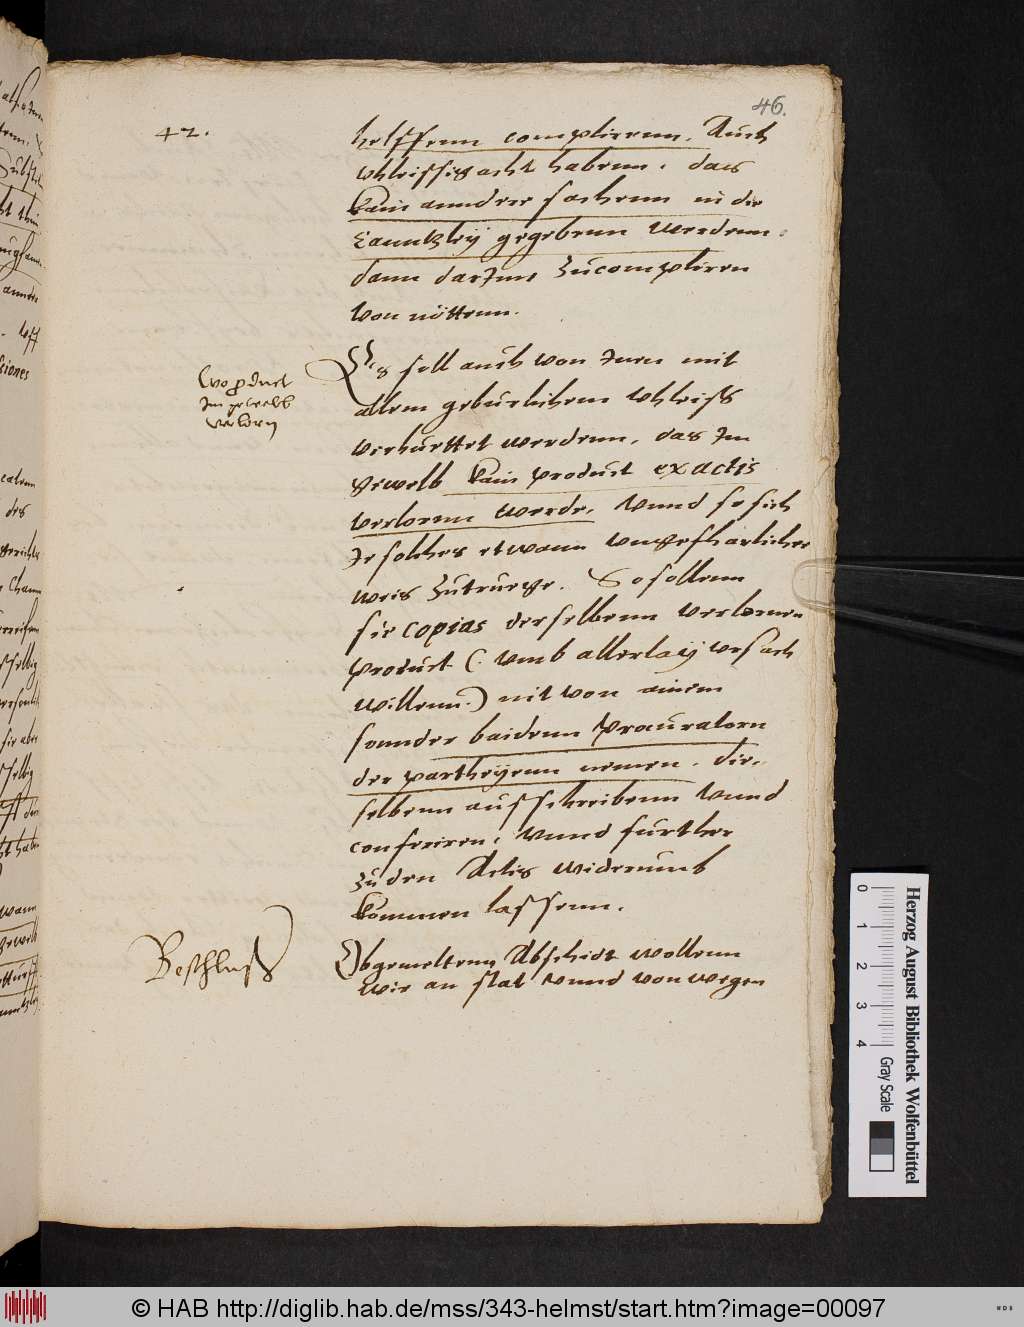 46.
42.
helffenn complierenn. Auch
vhleissig acht habenn, das
kain anndere sachenn in die
Canntzley gegebenn werdenn,
dann darInn zucompliren
von nöttenn.
Wo product
Im gewelb
verlorn
Es soll auch von Inen mit
allem geburlichem vhleiss
verhuettet werdenn, das Im
gewelb kain product ex actis
verlorenn werde, Vnnd so sich
Je solches etwann vngefharlicher
weis zutruege. So sollenn
sie copias derselbenn verlornen
product (: vmb allerlaÿ vrsach
willenn:) nit von ainem
sonnder baidenn Procuratorn
der partheÿenn nemen, die-
selbenn ausschreibenn vnnd
conferiren, vnnd further
zu den Actis widerumb
kommen lassenn.
Beschluß
Obgemeltenn Abschidt wollenn
wir an stat vnnd von wegen
Herzog August Bibliothek Wolfenbüttel
0 1 2 3 4
Gray Scale
© HAB http://diglib.hab.de/mss/343-helmst/start.htm?image=00097